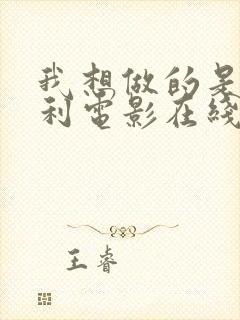 我想做的是
利電影在綫
王睿